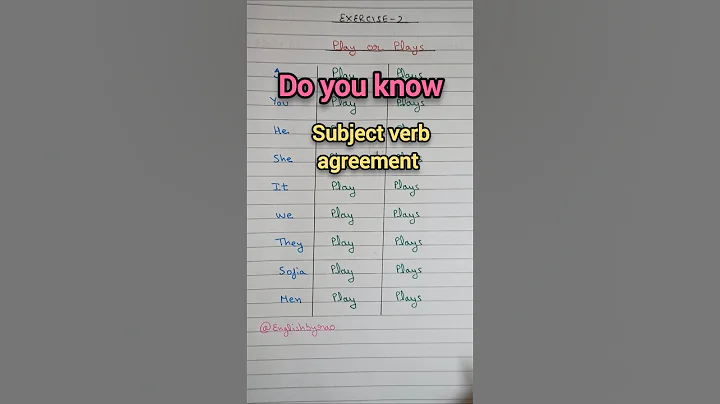 EXERCISE-2
Play or Plays
I Play Plays
Do you know
You Play Plays
He
Subject verb
She
agreement
It Play Plays
We Play Plays
They Play Plays
Sofia Play Plays
Men Play Plays